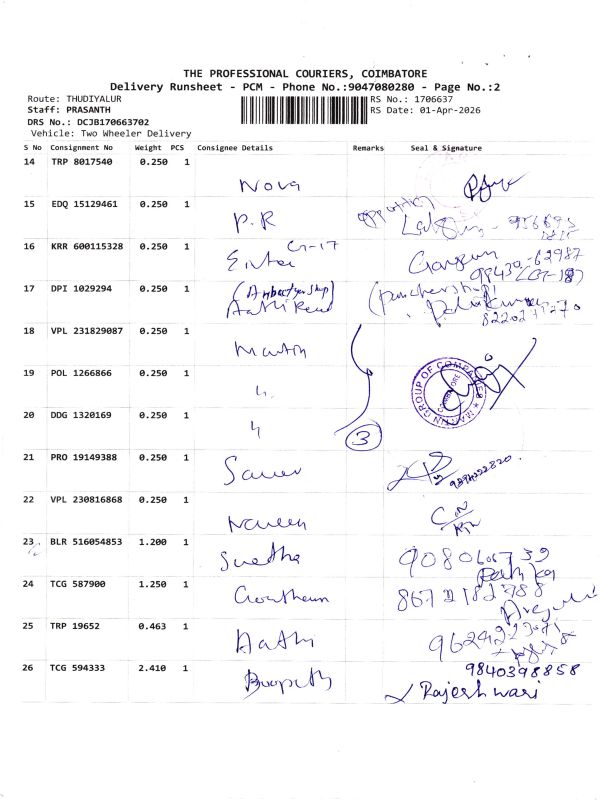 THE PROFESSIONAL COURIERS, COIMBATORE
Delivery Runsheet - PCM - Phone No.:9047080280 - Page No.:2
Route: THUDIYALUR RS No.: 1706637
Staff: PRASANTH RS Date: 01-Apr-2026
DRS No.: DCJB170663702
Vehicle: Two Wheeler Delivery
S No Consignment No Weight PCS Consignee Details Remarks Seal & Signature
14 TRP 8017540 0.250 1
Nova
15 EDQ 15129461 0.250 1
P.R
16 KRR 600115328 0.250 1
G-17
17 DPI 1029294 0.250 1
18 VPL 231829087 0.250 1
Martin
19 POL 1266866 0.250 1
MARTIN GROUP OF COMPANIES
COIMBATORE
20 DDG 1320169 0.250 1
3
21 PRO 19149388 0.250 1
22 VPL 230816868 0.250 1
Naveen
23 BLR 516054853 1.200 1
Swetha
24 TCG 587900 1.250 1
Gowtham
25 TRP 19652 0.463 1
26 TCG 594333 2.410 1
9840398858
Boopathy Rajeshwari